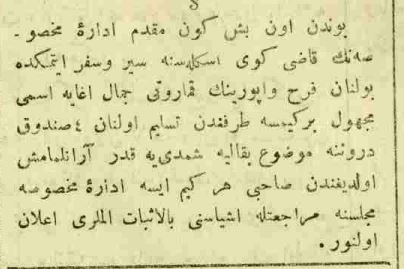 بوندن اون بش كون مقدم ادارۀ مخصو-
صه‌نك قاضی كوی اسكله‌سنه سیر و سفر ایتمكده
بولنان فرح واپورینك قماروتی جمال اغایه اسمی
مجهول بر كیمسه طرفندن تسلیم اولنان ٤ صندوق
دروننه موضوع بقالیه شمدی‌یه قدر آرانلمامش
اولدیغندن صاحبی هر كیم ایسه ادارۀ مخصوصه
مجلسنه مراجعتله اشیاسنی بالاثبات الملری اعلان
اولنور.